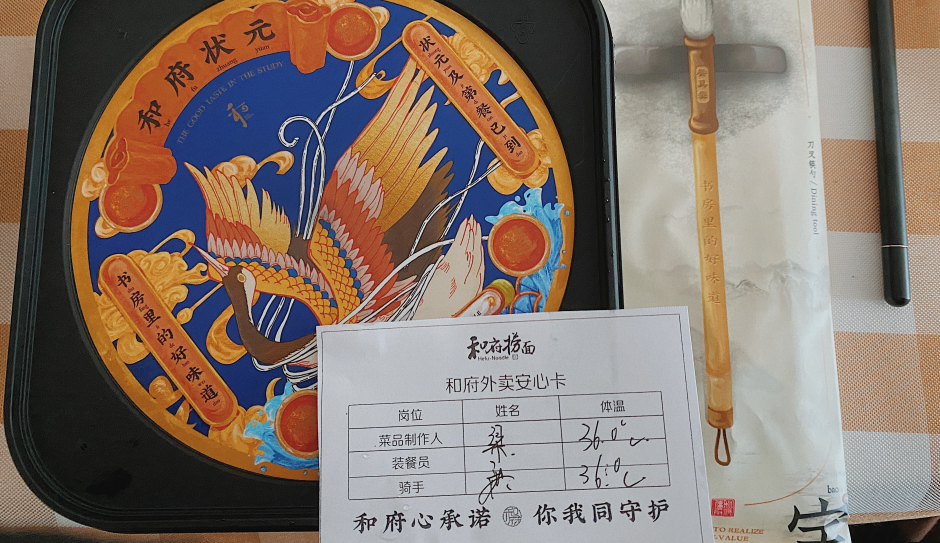 和府状元
he fu zhuang yuan
THE GOOD TASTE IN THE STUDY
状元及第餐已到
书房里的好味道
和府捞面
Hefu-Noodle
和府外卖安心卡
岗位 姓名 体温
菜品制作人 梁 36.0℃
装餐员
骑手 36.0℃
和府心承诺 你我同守护
书房里的好味道
刀叉餐勺 / Dining tool
TO REALIZE
VALUE
bao